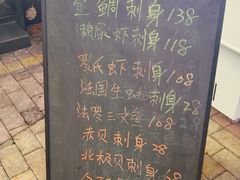 金鲷刺身138
濑尿虾刺身118
罗氏虾刺身108
法国生蚝刺身28
法罗三文鱼108
赤贝刺身28
北极贝刺身38